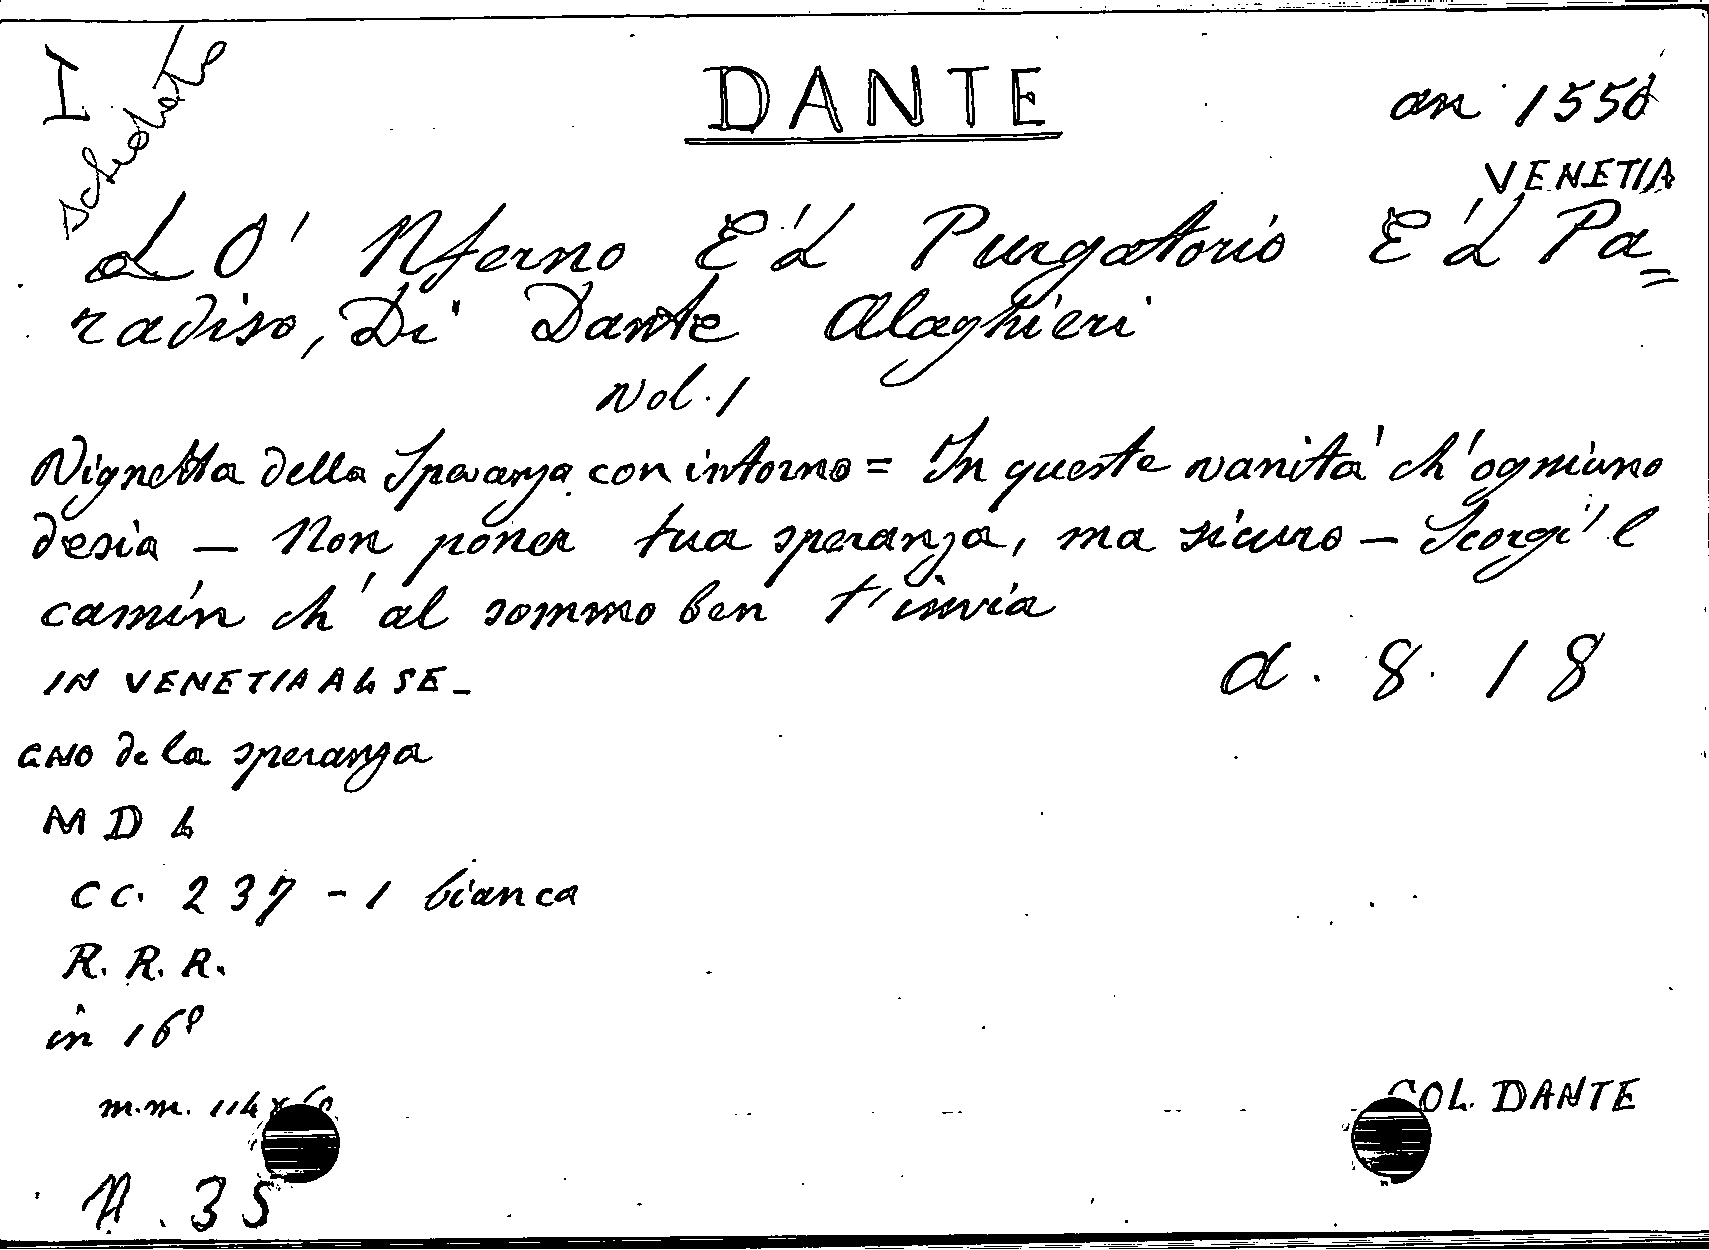 I
schedato
DANTE
an 1550
VENETIA
LO' Nferno E'L Purgatorio E'L Pa=
radiso, Di Dante Alaghieri
Vol. 1
Vignetta della Speranza con intorno = In queste vanità ch'ogniuno
desia — Non poner tua speranza, ma sicuro — Scorgi'l
camin ch'al sommo ben t'invia
IN VENETIA AL SE-
GNO de la speranza
a. 8. 18
MDL
cc. 237 - 1 bianca
R.R.R.
in 16º
m.m. 114 x
COL. DANTE
N. 35